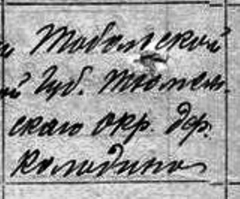 Тобольской
Губ. Тюмен-
скаго окр. дер.
Колодино